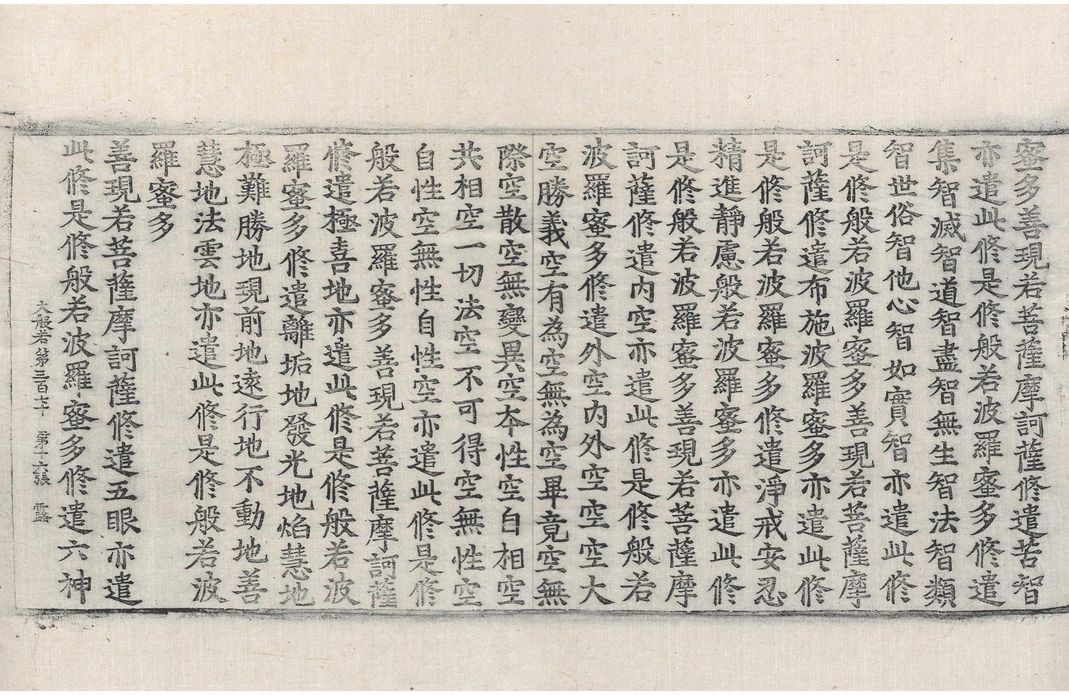 蜜多善現若菩薩摩訶薩修遣苦智
亦遣此修是修般若波羅蜜多修遣
集智滅智道智盡智無生智法智類
智世俗智他心智如實智亦遣此修
是修般若波羅蜜多善現若菩薩摩
訶薩修遣布施波羅蜜多亦遣此修
是修般若波羅蜜多修遣淨戒安忍
精進靜慮般若波羅蜜多亦遣此修
是修般若波羅蜜多善現若菩薩摩
訶薩修遣内空亦遣此修是修般若
波羅蜜多修遣外空内外空空空大
空勝義空有為空無為空畢竟空無
際空散空無變異空本性空自相空
共相空一切法空不可得空無性空
自性空無性自性空亦遣此修是修
般若波羅蜜多善現若菩薩摩訶薩
修遣極喜地亦遣此修是修般若波
羅蜜多修遣離垢地發光地焰慧地
極難勝地現前地遠行地不動地善
慧地法雲地亦遣此修是修般若波
羅蜜多
善現若菩薩摩訶薩修遣五眼亦遣
此修是修般若波羅蜜多修遣六神
大般若第三百七十 第十六張 露